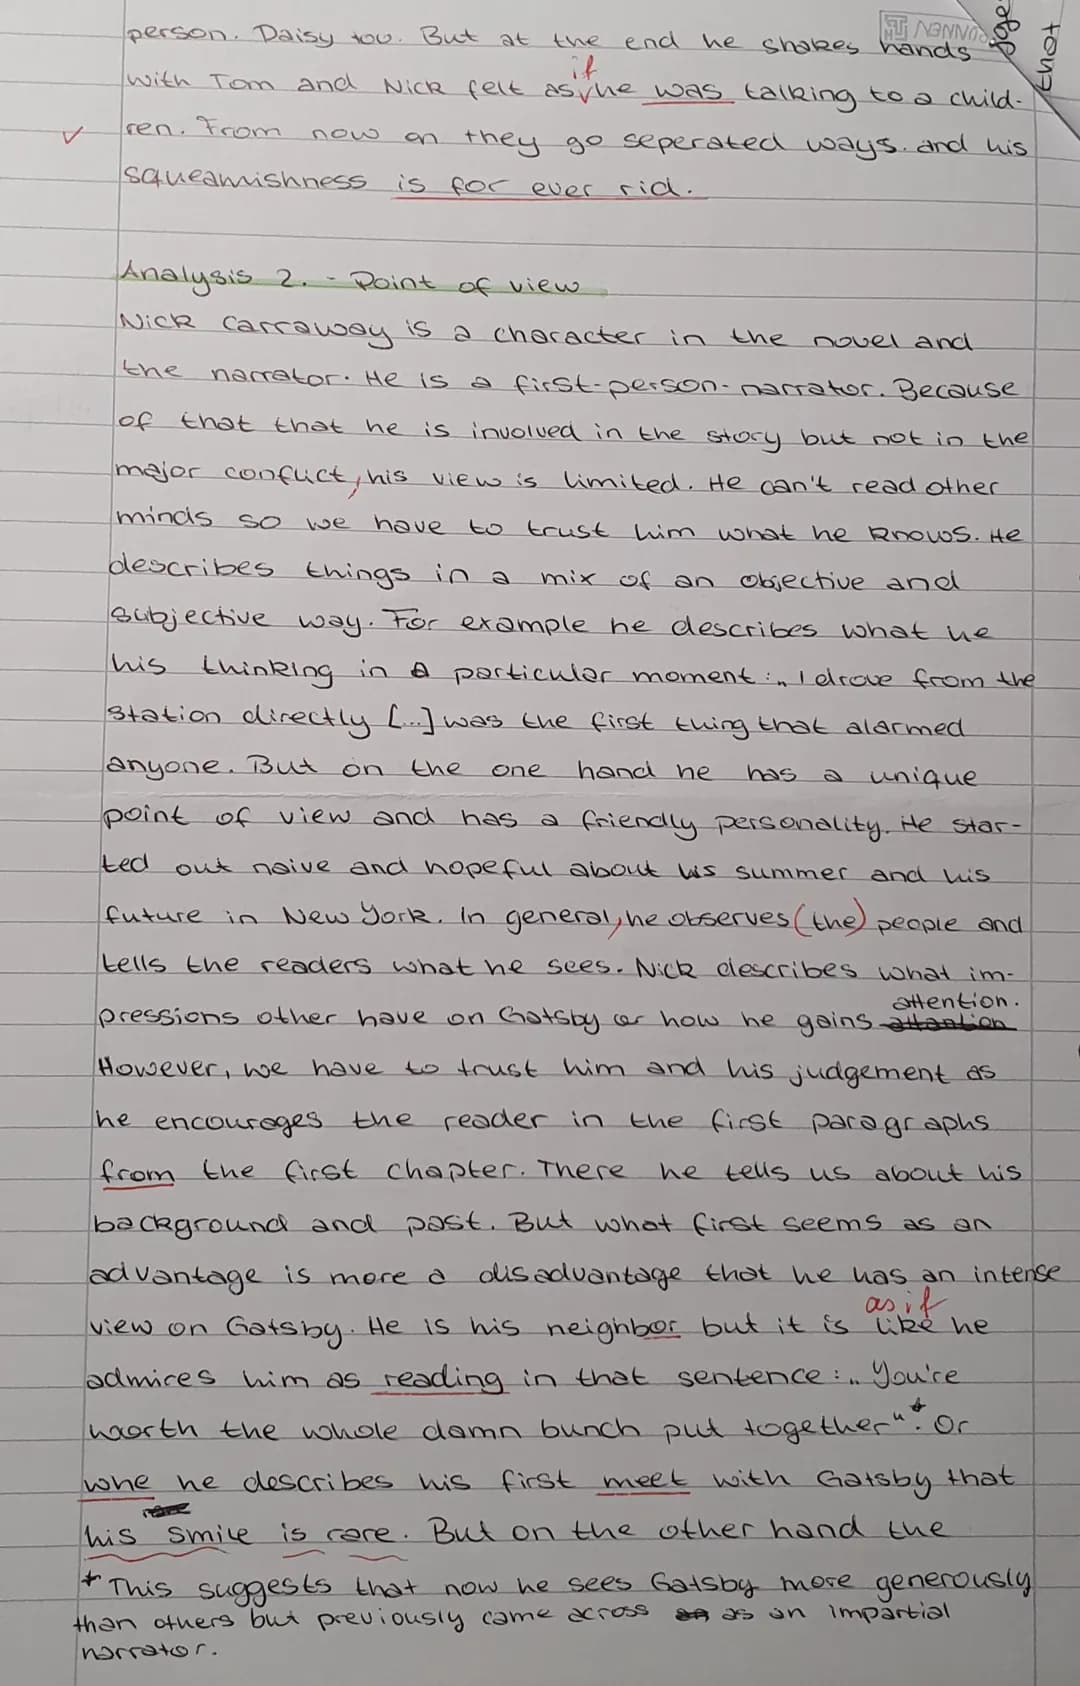 person. Daisy too. But at the end he shakes hands
if
with Tom and Nick felt as he was talking to a child-
ren. From now on they go seperated ways. and his
squeamishness is for ever rid.
Analysis 2. - Point of view
Nick Carraway is a character in the novel and
the narrator. He is a first-person-narrator. Because
of that that he is involved in the story but not in the
major conflict, his view is limited. He can't read other
minds so we have to trust him what he knows. He
describes things in a mix of an objective and
subjective way. For example he describes what he
his thinking in a particular moment: „I drove from the
station directly [...] was the first thing that alarmed
anyone. But on the one hand he has a unique
point of view and has a friendly personality. He star-
ted out naive and hopeful about his summer and his
future in New York. In general, he observes (the) people and
tells the readers what he sees. Nick describes what im-
attention.
pressions other have on Gatsby or how he gains attantion
However, we have to trust him and his judgement as
he encourages the reader in the first paragraphs
from the first chapter. There he tells us about his
background and past. But what first seems as an
advantage is more a disadvantage that he has an intense
as if
view on Gatsby. He is his neighbor but it is like he
admires him as reading in that sentence: „You're
worth the whole damn bunch put together“.* Or
whe he describes his first meet with Gatsby that
his smile is rare. But on the other hand the
* This suggests that now he sees Gatsby more generously
than others but previously came across as an impartial
narrator.